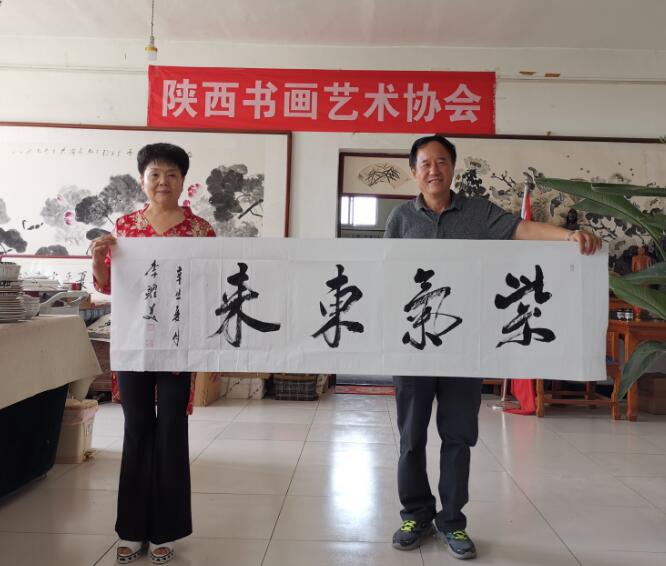 陕西书画艺术协会
紫氣東来
辛丑夏月
李耀美